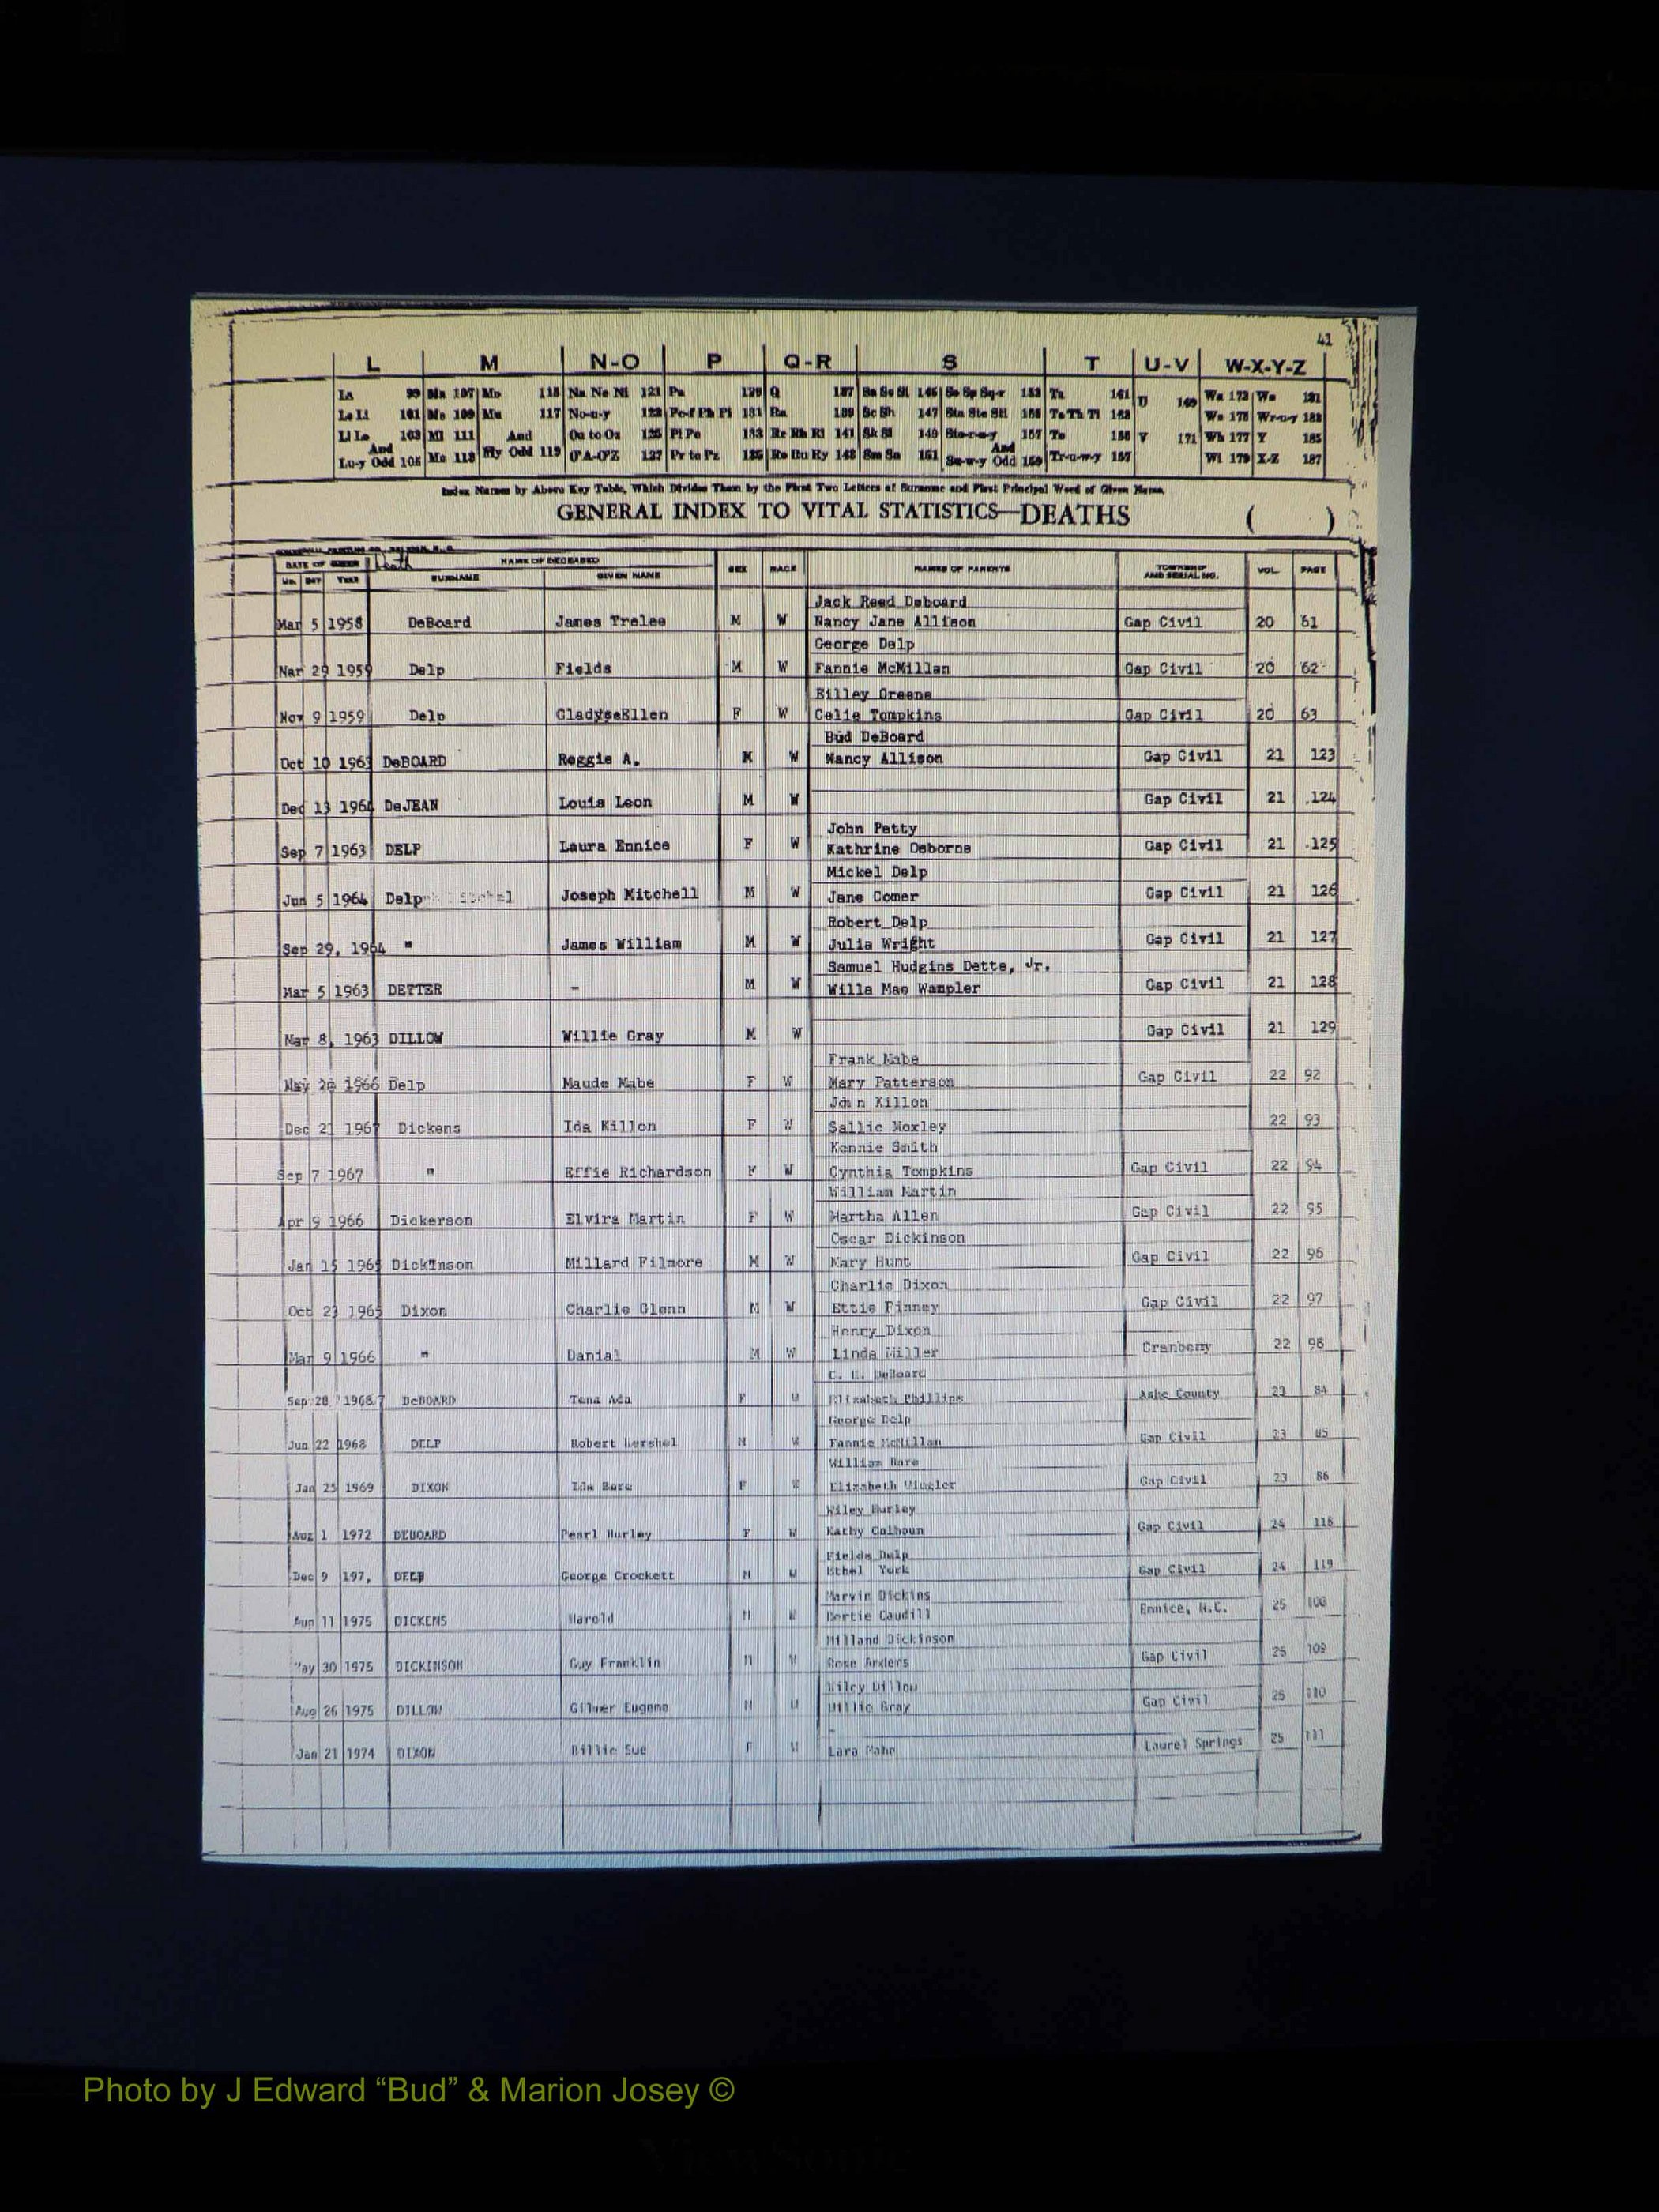 41
L M N-O P Q-R S T U-V W-X-Y-Z
La 99 Ma 107 Mo 115 Na Ne Ni 121 Pa 129 Q 137 Sa Se Si 145 So Sp Sq-r 153 Ta 161 U 169 Wa 173 Wo 181
Le Li 101 Mc 109 Mu 117 No-u-y 123 Pe-f Ph Pi 131 Ra 139 Sc Sh 147 Sta Ste Sti 155 Te Th Ti 163 We 175 Wr-u-y 183
Ll Lo 103 Mi 111 And Oa to Oz 125 Pl Po 133 Re Rh Ri 141 Sk Sl 149 Sto-r-u-y 157 To 165 V 171 Wh 177 Y 185
And Lu-y Odd 105 Me 113 My Odd 119 O'A-O'Z 127 Pr to Pz 135 Ro Ru Ry 143 Sm Sn 151 And Su-w-y Odd 159 Tr-u-w-y 167 Wi 179 X-Z 187
Index Names by Above Key Table, Which Divides Them by the First Two Letters of Surname and First Principal Word of Given Name.
GENERAL INDEX TO VITAL STATISTICS—DEATHS ( )
DATE OF Death NAME OF DECEASED SEX RACE NAMES OF PARENTS TOWNSHIP AND SERIAL NO. VOL. PAGE
Mo. DAY YEAR SURNAME GIVEN NAME
Jack Reed Deboard
Mar 5 1958 DeBoard James Tralee M W Nancy Jane Allison Gap Civil 20 61
George Delp
Mar 29 1959 Delp Fields M W Fannie McMillan Gap Civil 20 62
Billey Greene
Nov 9 1959 Delp Gladys Ellen F W Celie Tompkins Gap Civil 20 63
Bud DeBoard
Oct 10 1963 DeBOARD Reggie A. M W Nancy Allison Gap Civil 21 123
Dec 13 1964 DeJEAN Louis Leon M W Gap Civil 21 124
John Petty
Sep 7 1963 DELP Laura Ennice F W Kathrine Osborne Gap Civil 21 125
Mickel Delp
Jun 5 1964 Delp Joseph Mitchell M W Jane Comer Gap Civil 21 126
Robert Delp
Sep 29, 1964 " James William M W Julia Wright Gap Civil 21 127
Samuel Hudgins Dette, Jr.
Mar 5 1963 DETTER - M W Willa Mae Wampler Gap Civil 21 128
Mar 8, 1963 DILLOW Willie Gray M W Gap Civil 21 129
Frank Mabe
May 20 1966 Delp Maude Mabe F W Mary Patterson Gap Civil 22 92
John Killon
Dec 21 1967 Dickens Ida Killon F W Sallie Moxley 22 93
Kennie Smith
Sep 7 1967 " Effie Richardson F W Cynthia Tompkins Gap Civil 22 94
William Martin
Apr 9 1966 Dickerson Elvira Martin F W Martha Allen Gap Civil 22 95
Oscar Dickinson
Jan 15 1965 Dickinson Millard Filmore M W Mary Hunt Gap Civil 22 96
Charlie Dixon
Oct 23 1965 Dixon Charlie Glenn M W Ettie Finney Gap Civil 22 97
Henry Dixon
Mar 9 1966 " Danial M W Linda Miller Cranberry 22 98
C. H. DeBoard
Sep 28 1968 DeBOARD Tena Ada F W Elizabeth Phillips Ashe County 23 84
George Delp
Jun 22 1968 DELP Robert Hershel M W Fannie McMillan Gap Civil 23 85
William Bare
Jan 25 1969 DIXON Ida Bare F W Elizabeth Gap Civil 23 86
Wiley Hurley
Aug 1 1972 DEBOARD Pearl Hurley F W Kathy Calhoun Gap Civil 24 118
Fields Delp
Dec 9 197, DELP George Crockett M W Ethel York Gap Civil 24 119
Marvin Dickins
11 1975 DICKENS Harold M W Bertie Caudill Ennice, N.C. 25 108
Milland Dickinson
May 30 1975 DICKINSON Guy Franklin M W Rose Anders Gap Civil 25 109
Wiley Dillow
Aug 26 1975 DILLOW Gilmer Eugene M W Willie Gray Gap Civil 25 110
-
Jan 21 1974 DIXON Billie Sue F W Lara Gap Civil Laurel Springs 25 111
Photo by J Edward “Bud” & Marion Josey ©